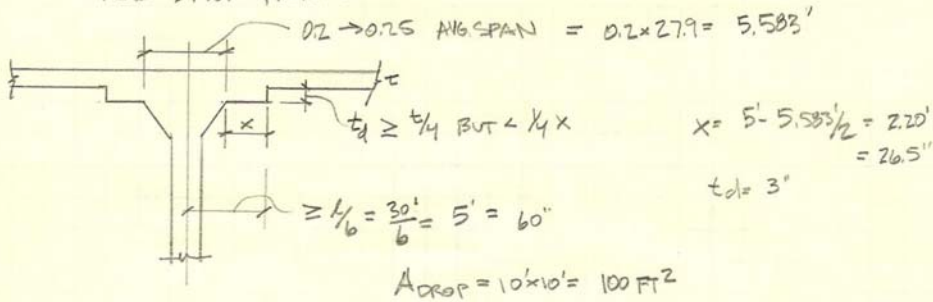 0.2 → 0.25 AVG. SPAN = 0.2 x 27.9 = 5.583'
t
td ≥ t/4 BUT < 1/4 X
X = 5' - 5.583'/2 = 2.20'
= 26.5"
td = 3"
X
≥ l/6 = 30'/6 = 5' = 60"
ADROP = 10' x 10' = 100 FT²